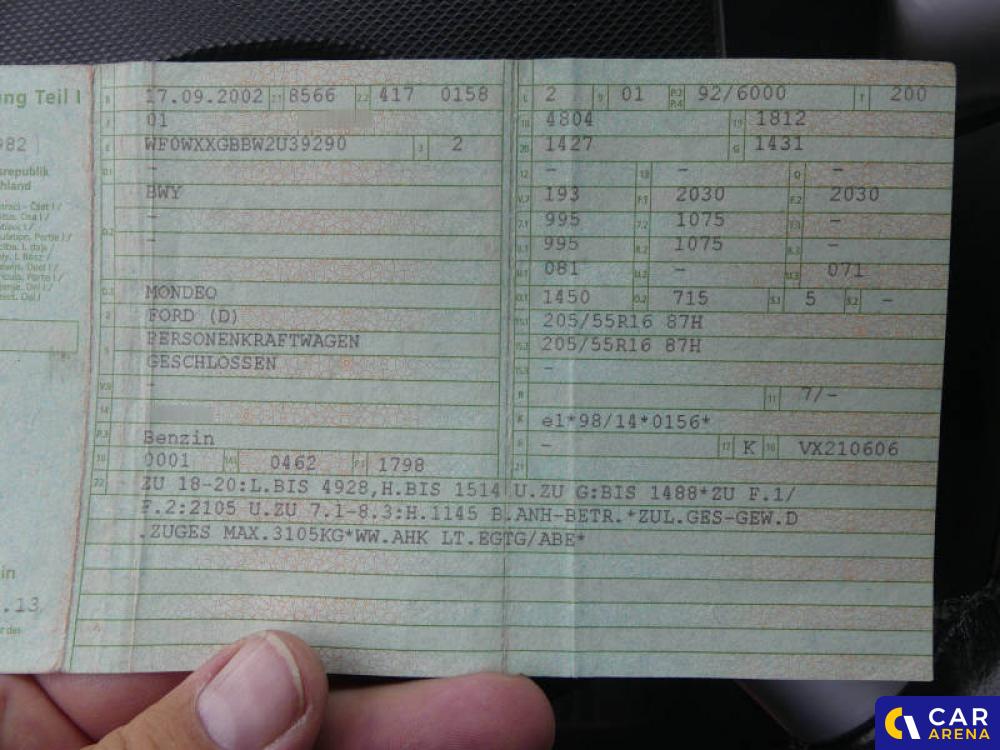 ung Teil I
982
srepublik
hland
B 17.09.2002 2.1 8566 2.2 417 0158
J 01
E WF0WXXGBBW2U39290 3 2
D.1 -
BWY
D.2 -
-
D.3 MONDEO
2 FORD (D)
5 PERSONENKRAFTWAGEN
GESCHLOSSEN
V.9 -
14
P.3 Benzin
10 0001 14.1 0462 P.1 1798
22 ZU 18-20:L.BIS 4928,H.BIS 1514 U.ZU G:BIS 1488*ZU F.1/
F.2:2105 U.ZU 7.1-8.3:H.1145 B.ANH-BETR.*ZUL.GES-GEW.D
.ZUGES MAX.3105KG*WW.AHK LT.EGTG/ABE*
L 2 9 01 P.2 P.4 92/6000 T 200
18 4804 19 1812
20 1427 G 1431
12 - 13 - Q -
V.7 193 F.1 2030 F.2 2030
7.1 995 7.2 1075 7.3 -
8.1 995 8.2 1075 8.3 -
U.1 081 U.2 - U.3 071
O.1 1450 O.2 715 S.1 5 S.2 -
15.1 205/55R16 87H
15.2 205/55R16 87H
15.3 -
R 11 7/-
K e1*98/14*0156*
6 - 17 K 16 VX210606
21
in
.13
CAR
ARENA